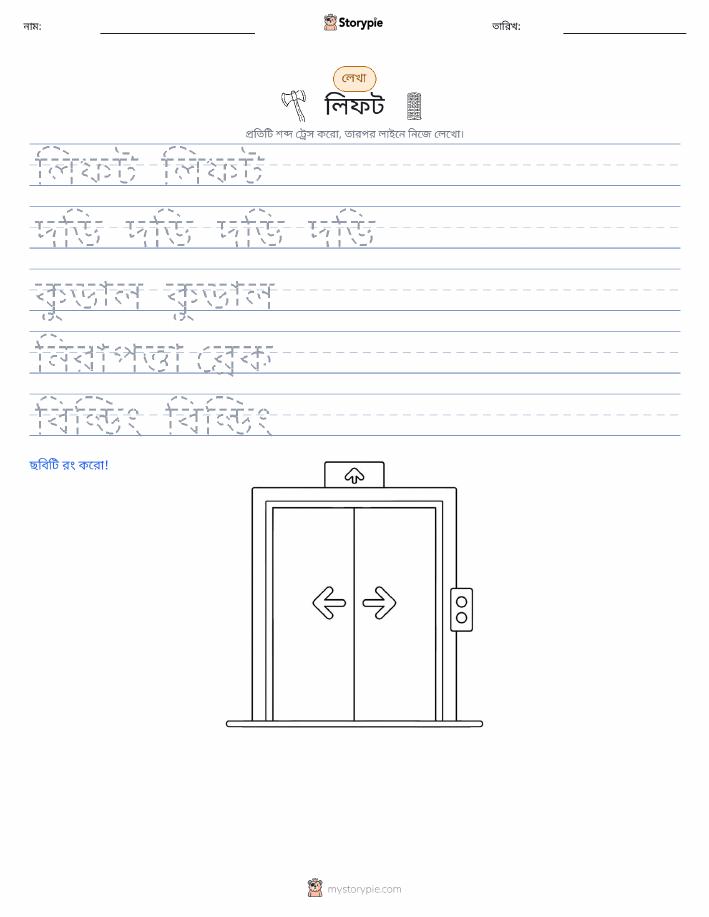 নাম:
Storypie
তারিখ:
লেখা
লিফট
প্রতিটি শব্দ ট্রেস করো, তারপর লাইনে নিজে লেখো।
লিফট লিফট
দড়ি দড়ি দড়ি দড়ি
কুড়াল কুড়াল
নিরাপত্তা ব্রেক
বিল্ডিং বিল্ডিং
ছবিটি রং করো!
mystorypie.com